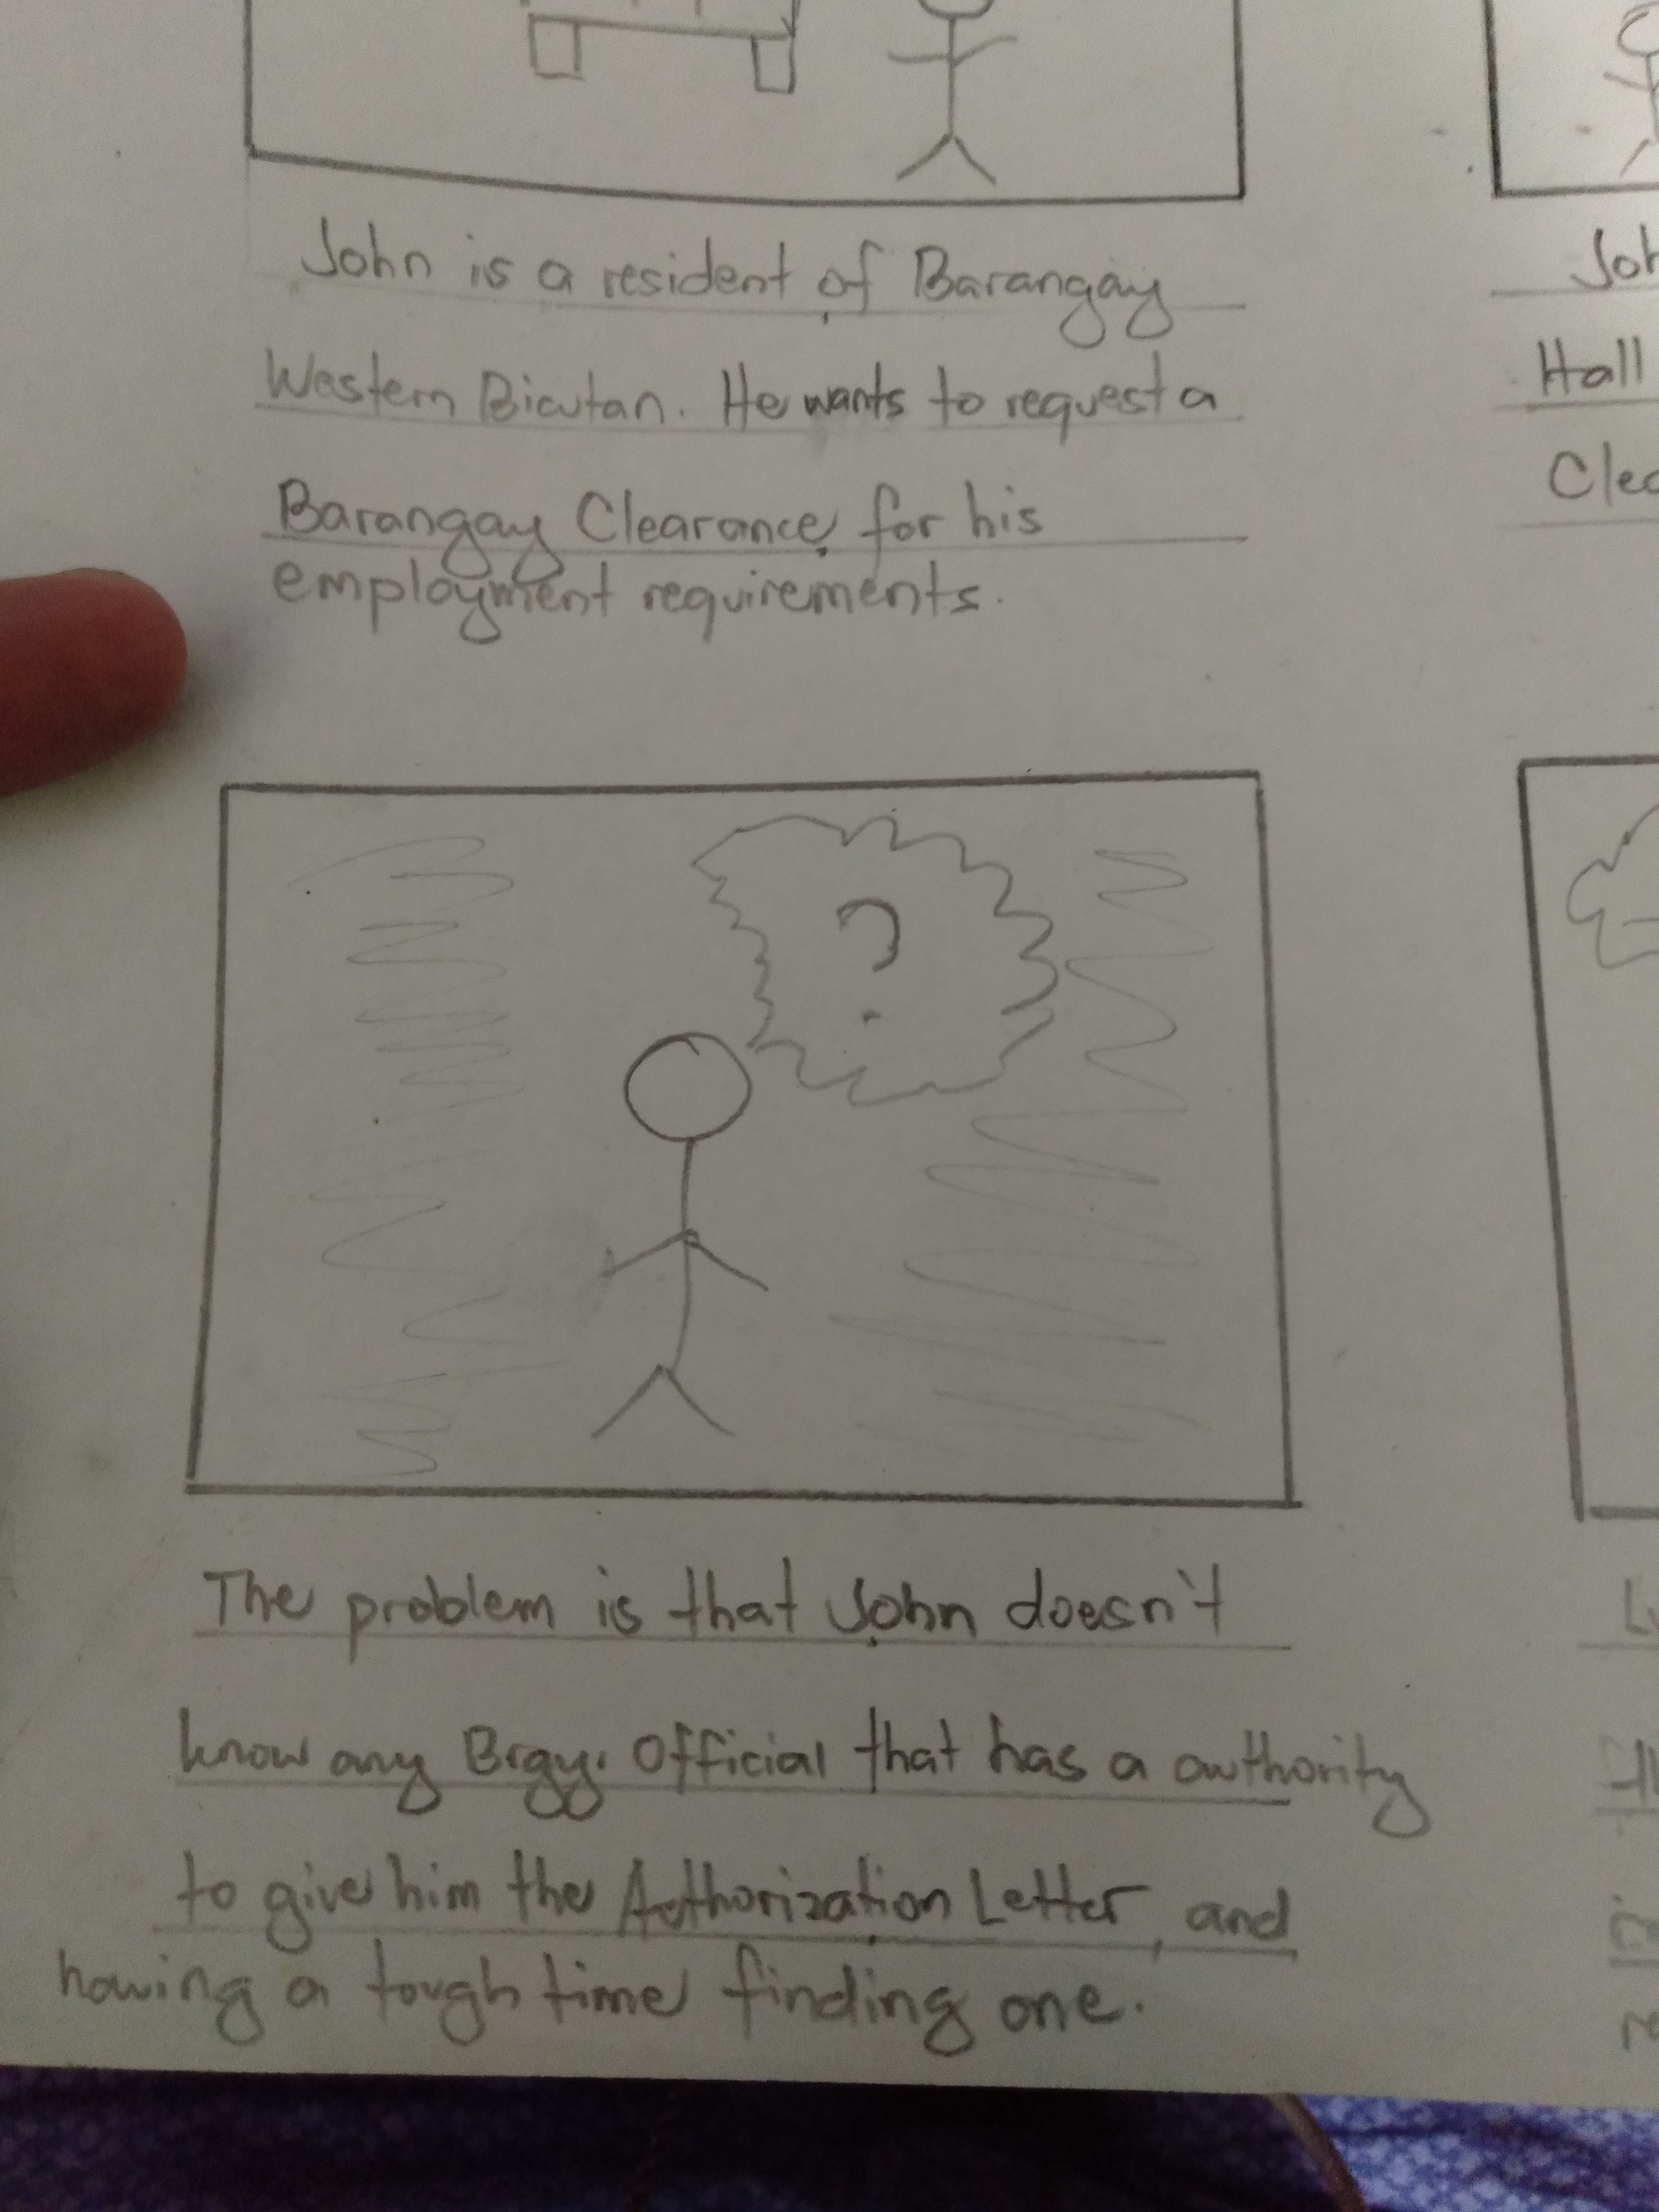 John is a resident of Barangay
Western Bicutan. He wants to request a
Barangay Clearance for his
employment requirements.
Hall
?
The problem is that John doesn't
know any Brgy. Official that has a authority
to give him the Authorization Letter, and
having a tough time finding one.